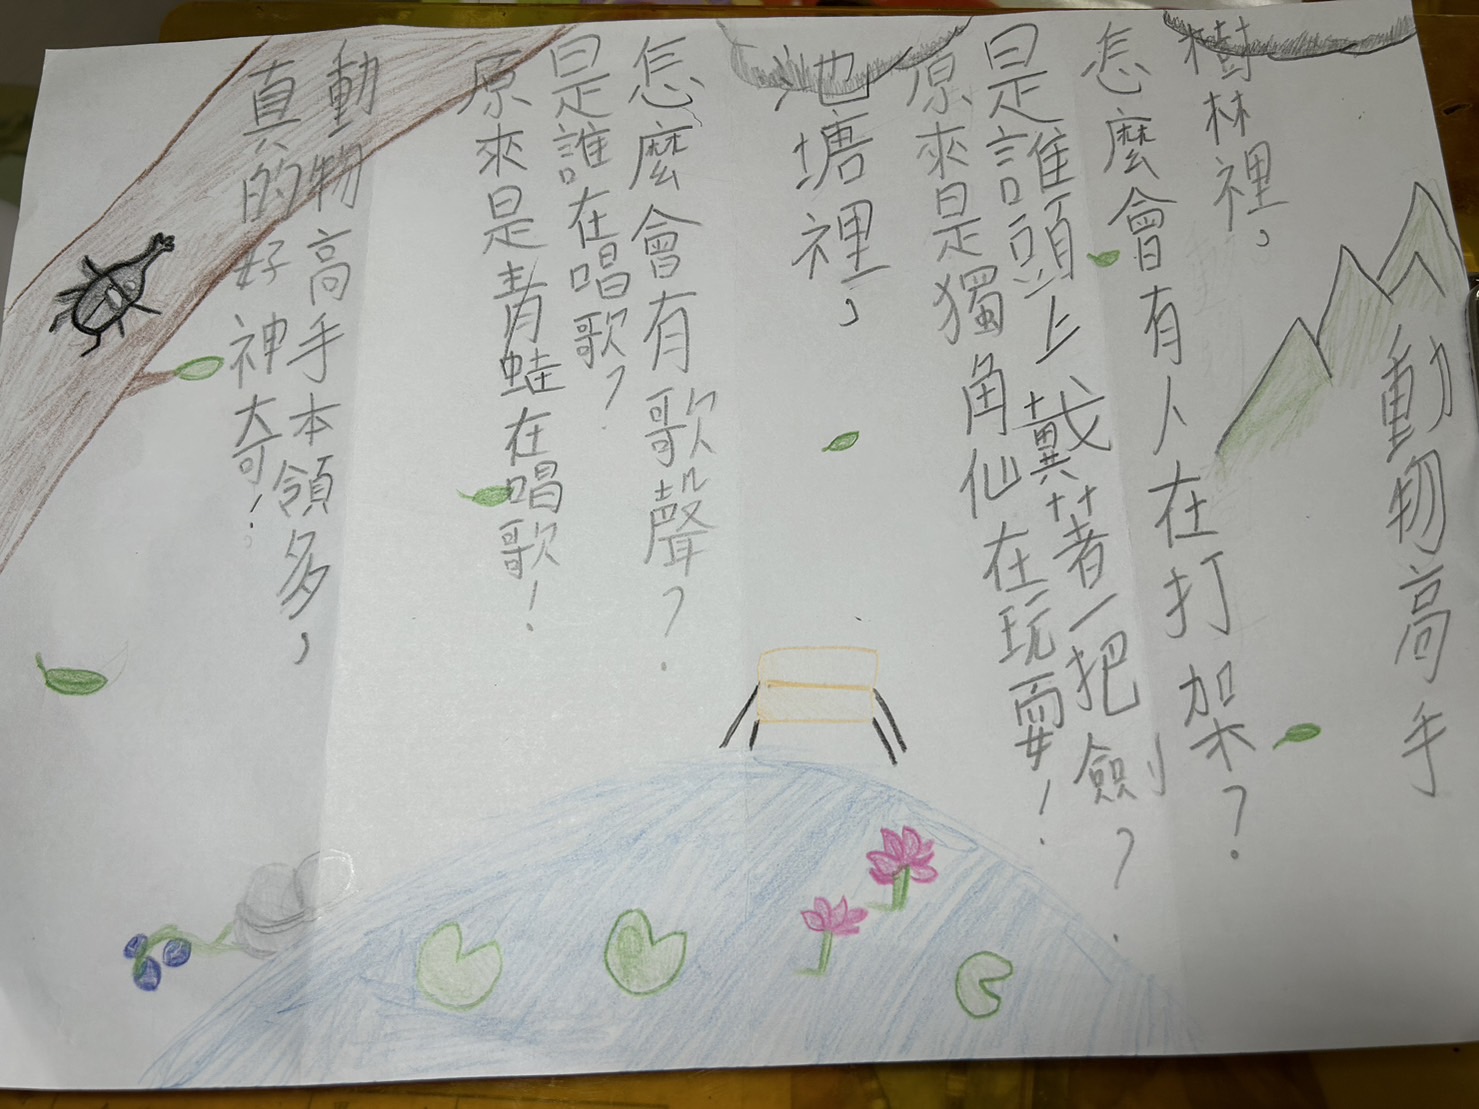 動物高手
樹林裡，
怎麼會有人在打架？
是誰頭上戴著一把劍？
原來是獨角仙在玩耍！
池塘裡，
怎麼會有歌聲？
是誰在唱歌？
原來是青蛙在唱歌！
動物高手本領多，
真的好神奇！